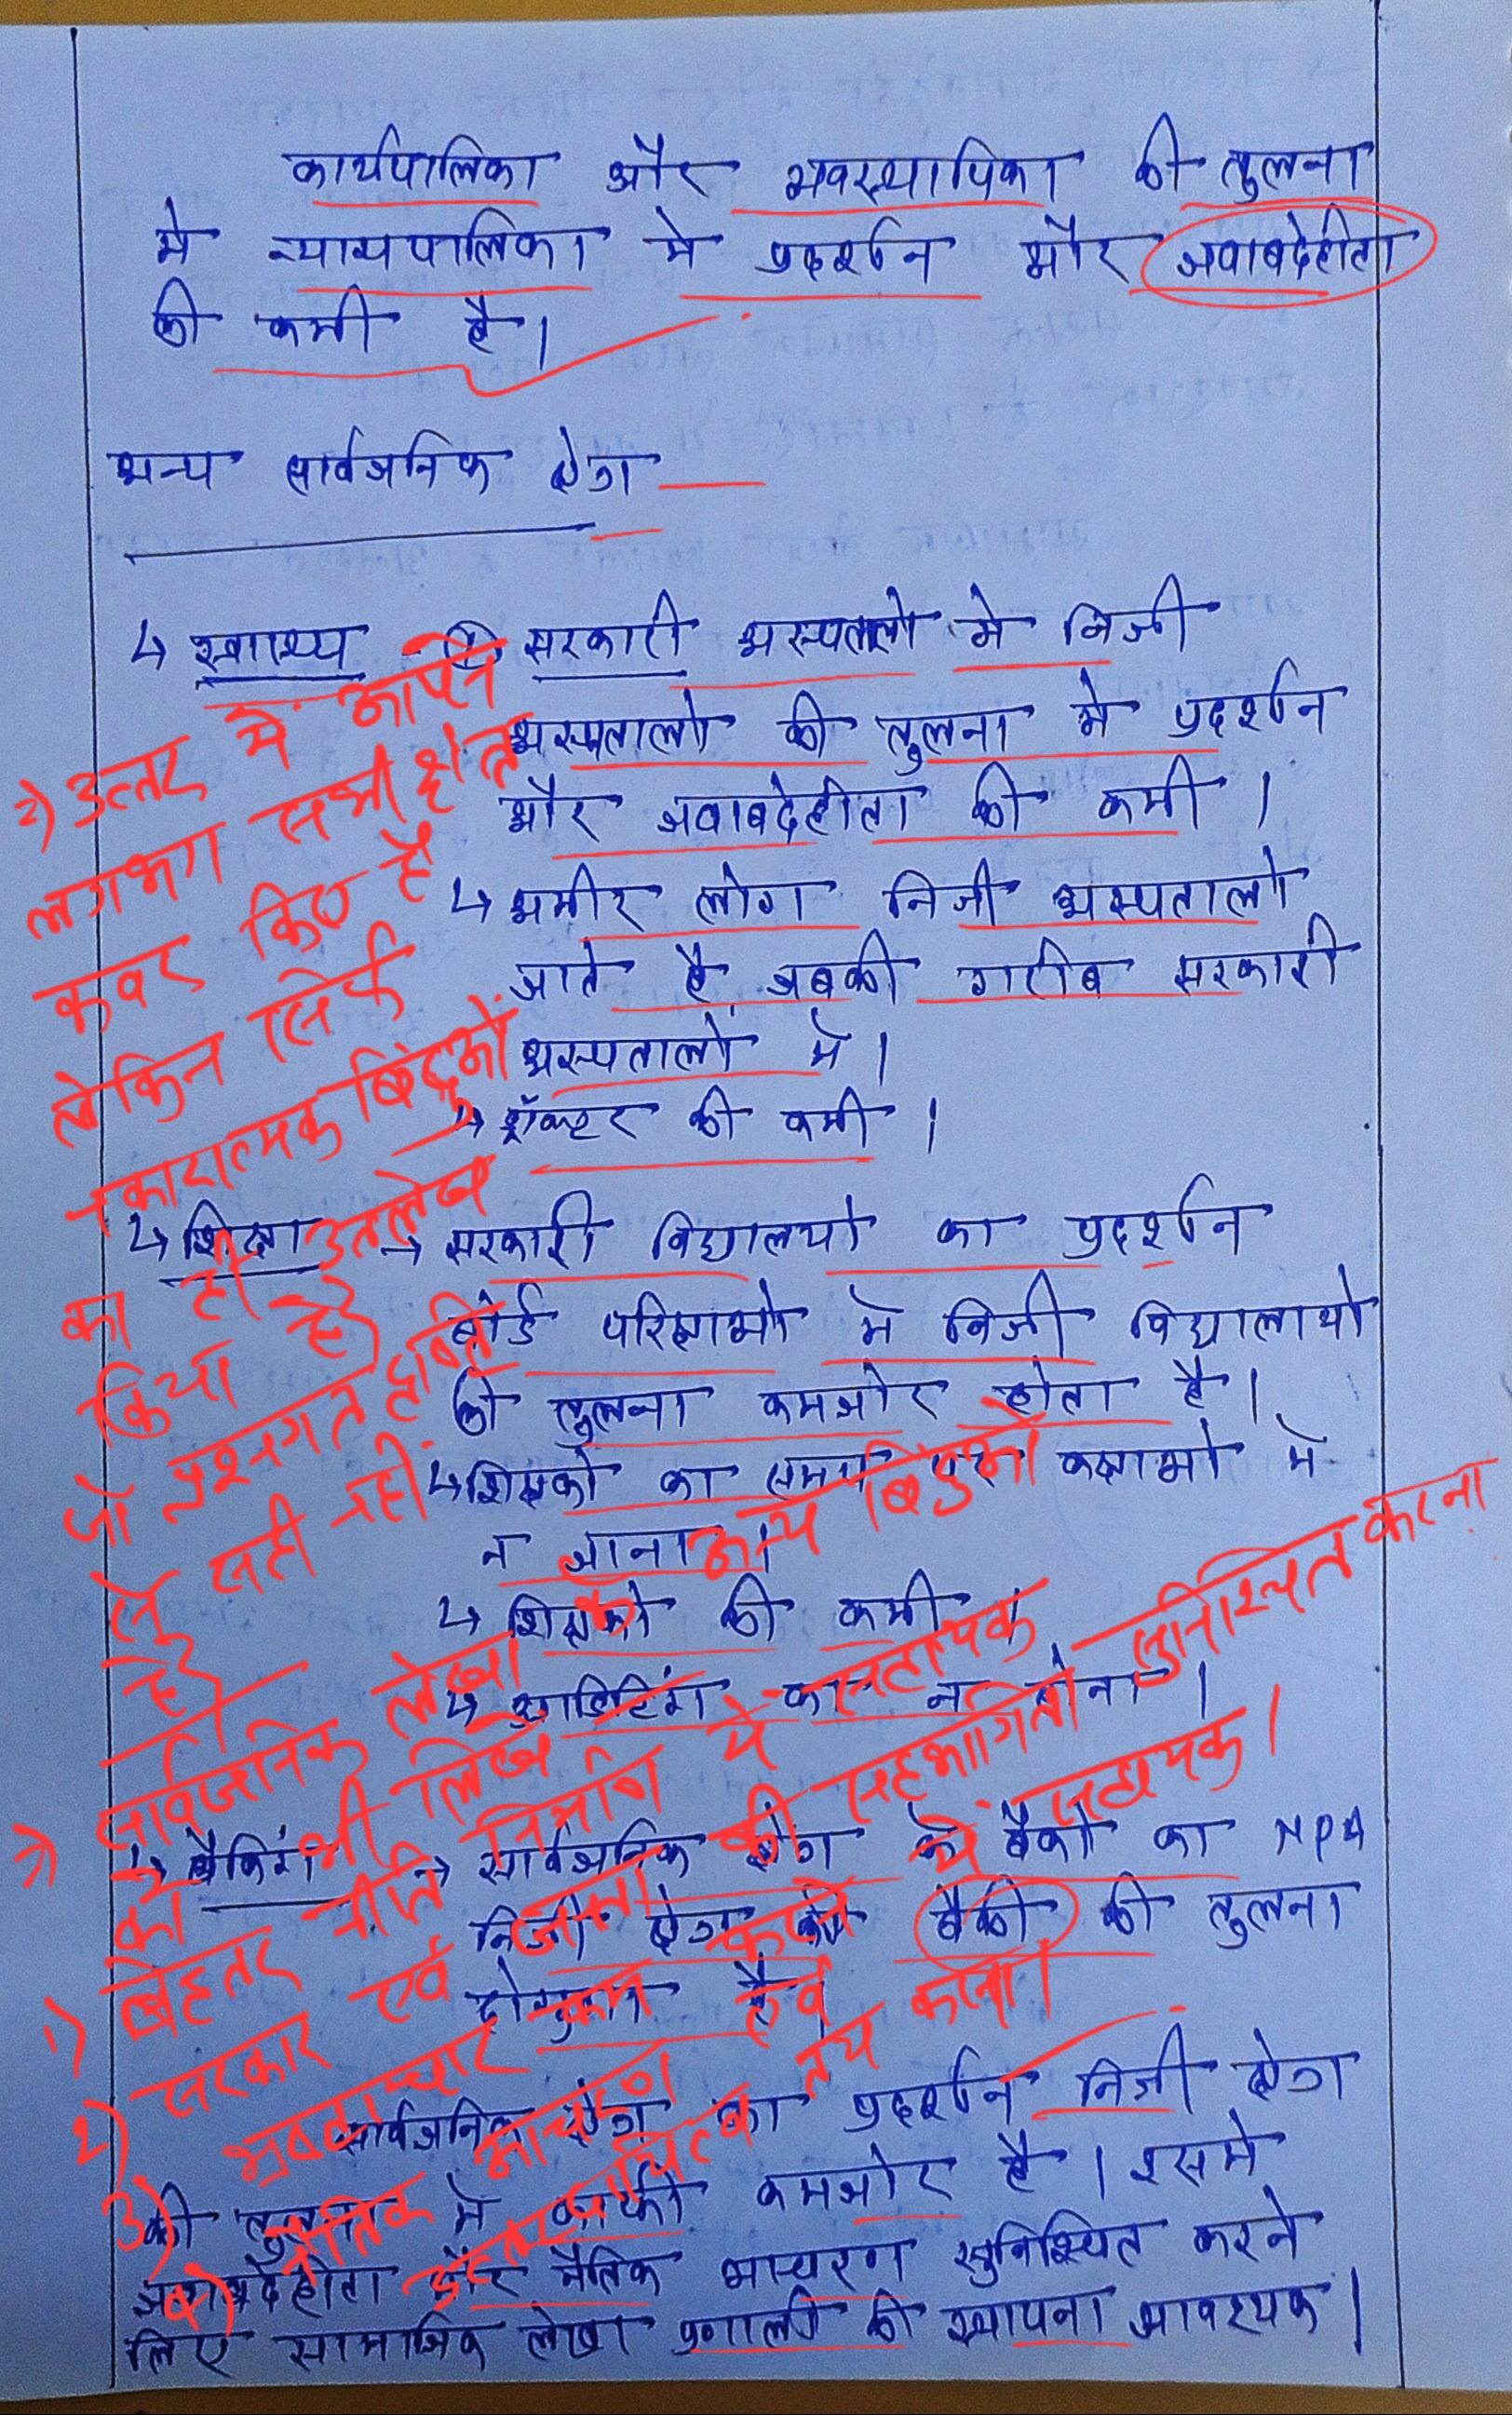 कार्यपालिका और व्यवस्थापिका की तुलना
मे न्यायपालिका मे प्रदर्शन और जवाबदेहीता
की कमी है।
अन्य सार्वजनिक क्षेत्र
↳ स्वास्थ्य → सरकारी अस्पतालो मे निजी
अस्पतालो की तुलना मे प्रदर्शन
और जवाबदेहीता की कमी।
↳ अमीर लोग निजी अस्पतालो
जाते है, जबकी गरीब सरकारी
अस्पतालो मे।
↳ डॉक्टर की कमी।
↳ शिक्षा → सरकारी विद्यालयो का प्रदर्शन
बोर्ड परिक्षाओ मे निजी विद्यालायो
की तुलना कमजोर होता है।
↳ शिक्षको का समय पर कक्षाओ मे
न जाना।
↳ शिक्षको की कमी।
↳ आडिटिंग का न होना।
↳ बैकिंग → सार्वजनिक क्षेत्र के बैंको का NPA
निजी क्षेत्र के बैंको की तुलना
दोगुना है।
सार्वजनिक क्षेत्र का प्रदर्शन निजी क्षेत्र
की तुलना मे काफी कमजोर है। इसमे
जवाबदेहीता और नैतिक आचरण सुनिश्चित करने
लिए सामाजिक लेखा प्रणाली की स्थापना आवश्यक।
२) उत्तर में आपने
लगभग सभी क्षेत्र
कवर किए हैं
लेकिन सिर्फ
नकारात्मक बिंदुओं
का ही उल्लेख
किया है
जो प्रश्नगत दृष्टि
से सही नहीं
है।
३) सार्वजनिक लेखा के अन्य बिंदुओं
को भी लिखें
1) बेहतर नीति निर्माण में सहायक
2) सरकार एवं जनता की सहभागिता सुनिश्चित करना
3) भ्रष्टाचार कम करने में सहायक।
4) नैतिक आचरण एवं
उत्तरदायित्व तय करना।